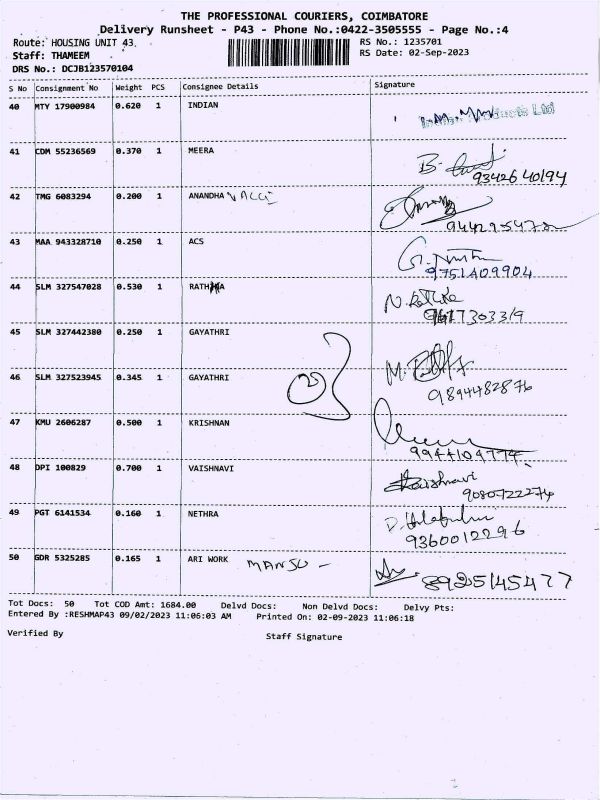 THE PROFESSIONAL COURIERS, COIMBATORE
Delivery Runsheet - P43 - Phone No.:0422-3505555 - Page No.:4
Route: HOUSING UNIT 43 RS No.: 1235701
Staff: THAMEEM RS Date: 02-Sep-2023
DRS No.: DCJB123570104
S No Consignment No Weight PCS Consignee Details Signature
40 MTY 17900984 0.620 1 INDIAN
41 CDM 55236569 0.370 1 MEERA
9342640194
42 TMG 6083294 0.200 1 ANANDHA VALLI
43 MAA 943328710 0.250 1 ACS
9751409904
44 SLM 327547028 0.530 1
45 SLM 327442380 0.250 1 GAYATHRI
46 SLM 327523945 0.345 1 GAYATHRI
9894482876
47 KMU 2606287 0.500 1 KRISHNAN
9944109774
48 DPI 100829 0.700 1 VAISHNAVI
Vaishnavi
9080722274
49 PGT 6141534 0.160 1 NETHRA
9360012296
50 GDR 5325285 0.165 1 ARI WORK MANSU -
8925145477
Tot Docs: 50 Tot COD Amt: 1684.00 Delvd Docs: Non Delvd Docs: Delvy Pts:
Entered By :RESHMAP43 09/02/2023 11:06:03 AM Printed On: 02-09-2023 11:06:18
Verified By Staff Signature